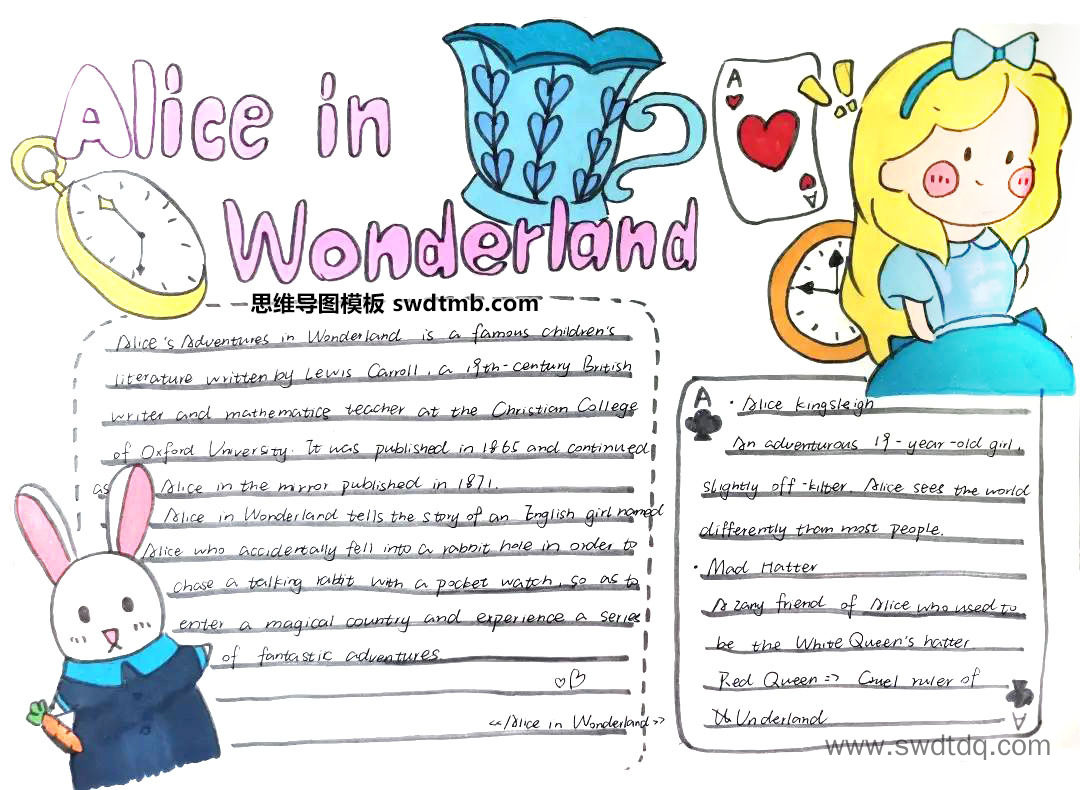 Alice in
Wonderland
A
A
思维导图模板 swdtmb.com
Alice's Adventures in Wonderland is a famous children's
literature written by Lewis Carroll, a 19th-century British
writer and mathematics teacher at the Christian College
of Oxford University. It was published in 1865 and continued
as Alice in the mirror published in 1871.
Alice in Wonderland tells the story of an English girl named
Alice who accidentally fell into a rabbit hole in order to
chase a talking rabbit with a pocket watch, so as to
enter a magical country and experience a series
of fantastic adventures.
«Alice in Wonderland»
A
· Alice kingsleigh
An adventurous 19-year-old girl,
slightly off-kilter. Alice sees the world
differently than most people.
· Mad Hatter
A zany friend of Alice who used to
be the White Queen's hatter
Red Queen => Cruel ruler of
Underland
A
www.swdtdq.com